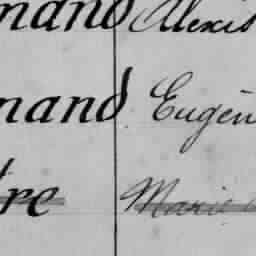 mand Alexis
mand Eugèn
tre Marie